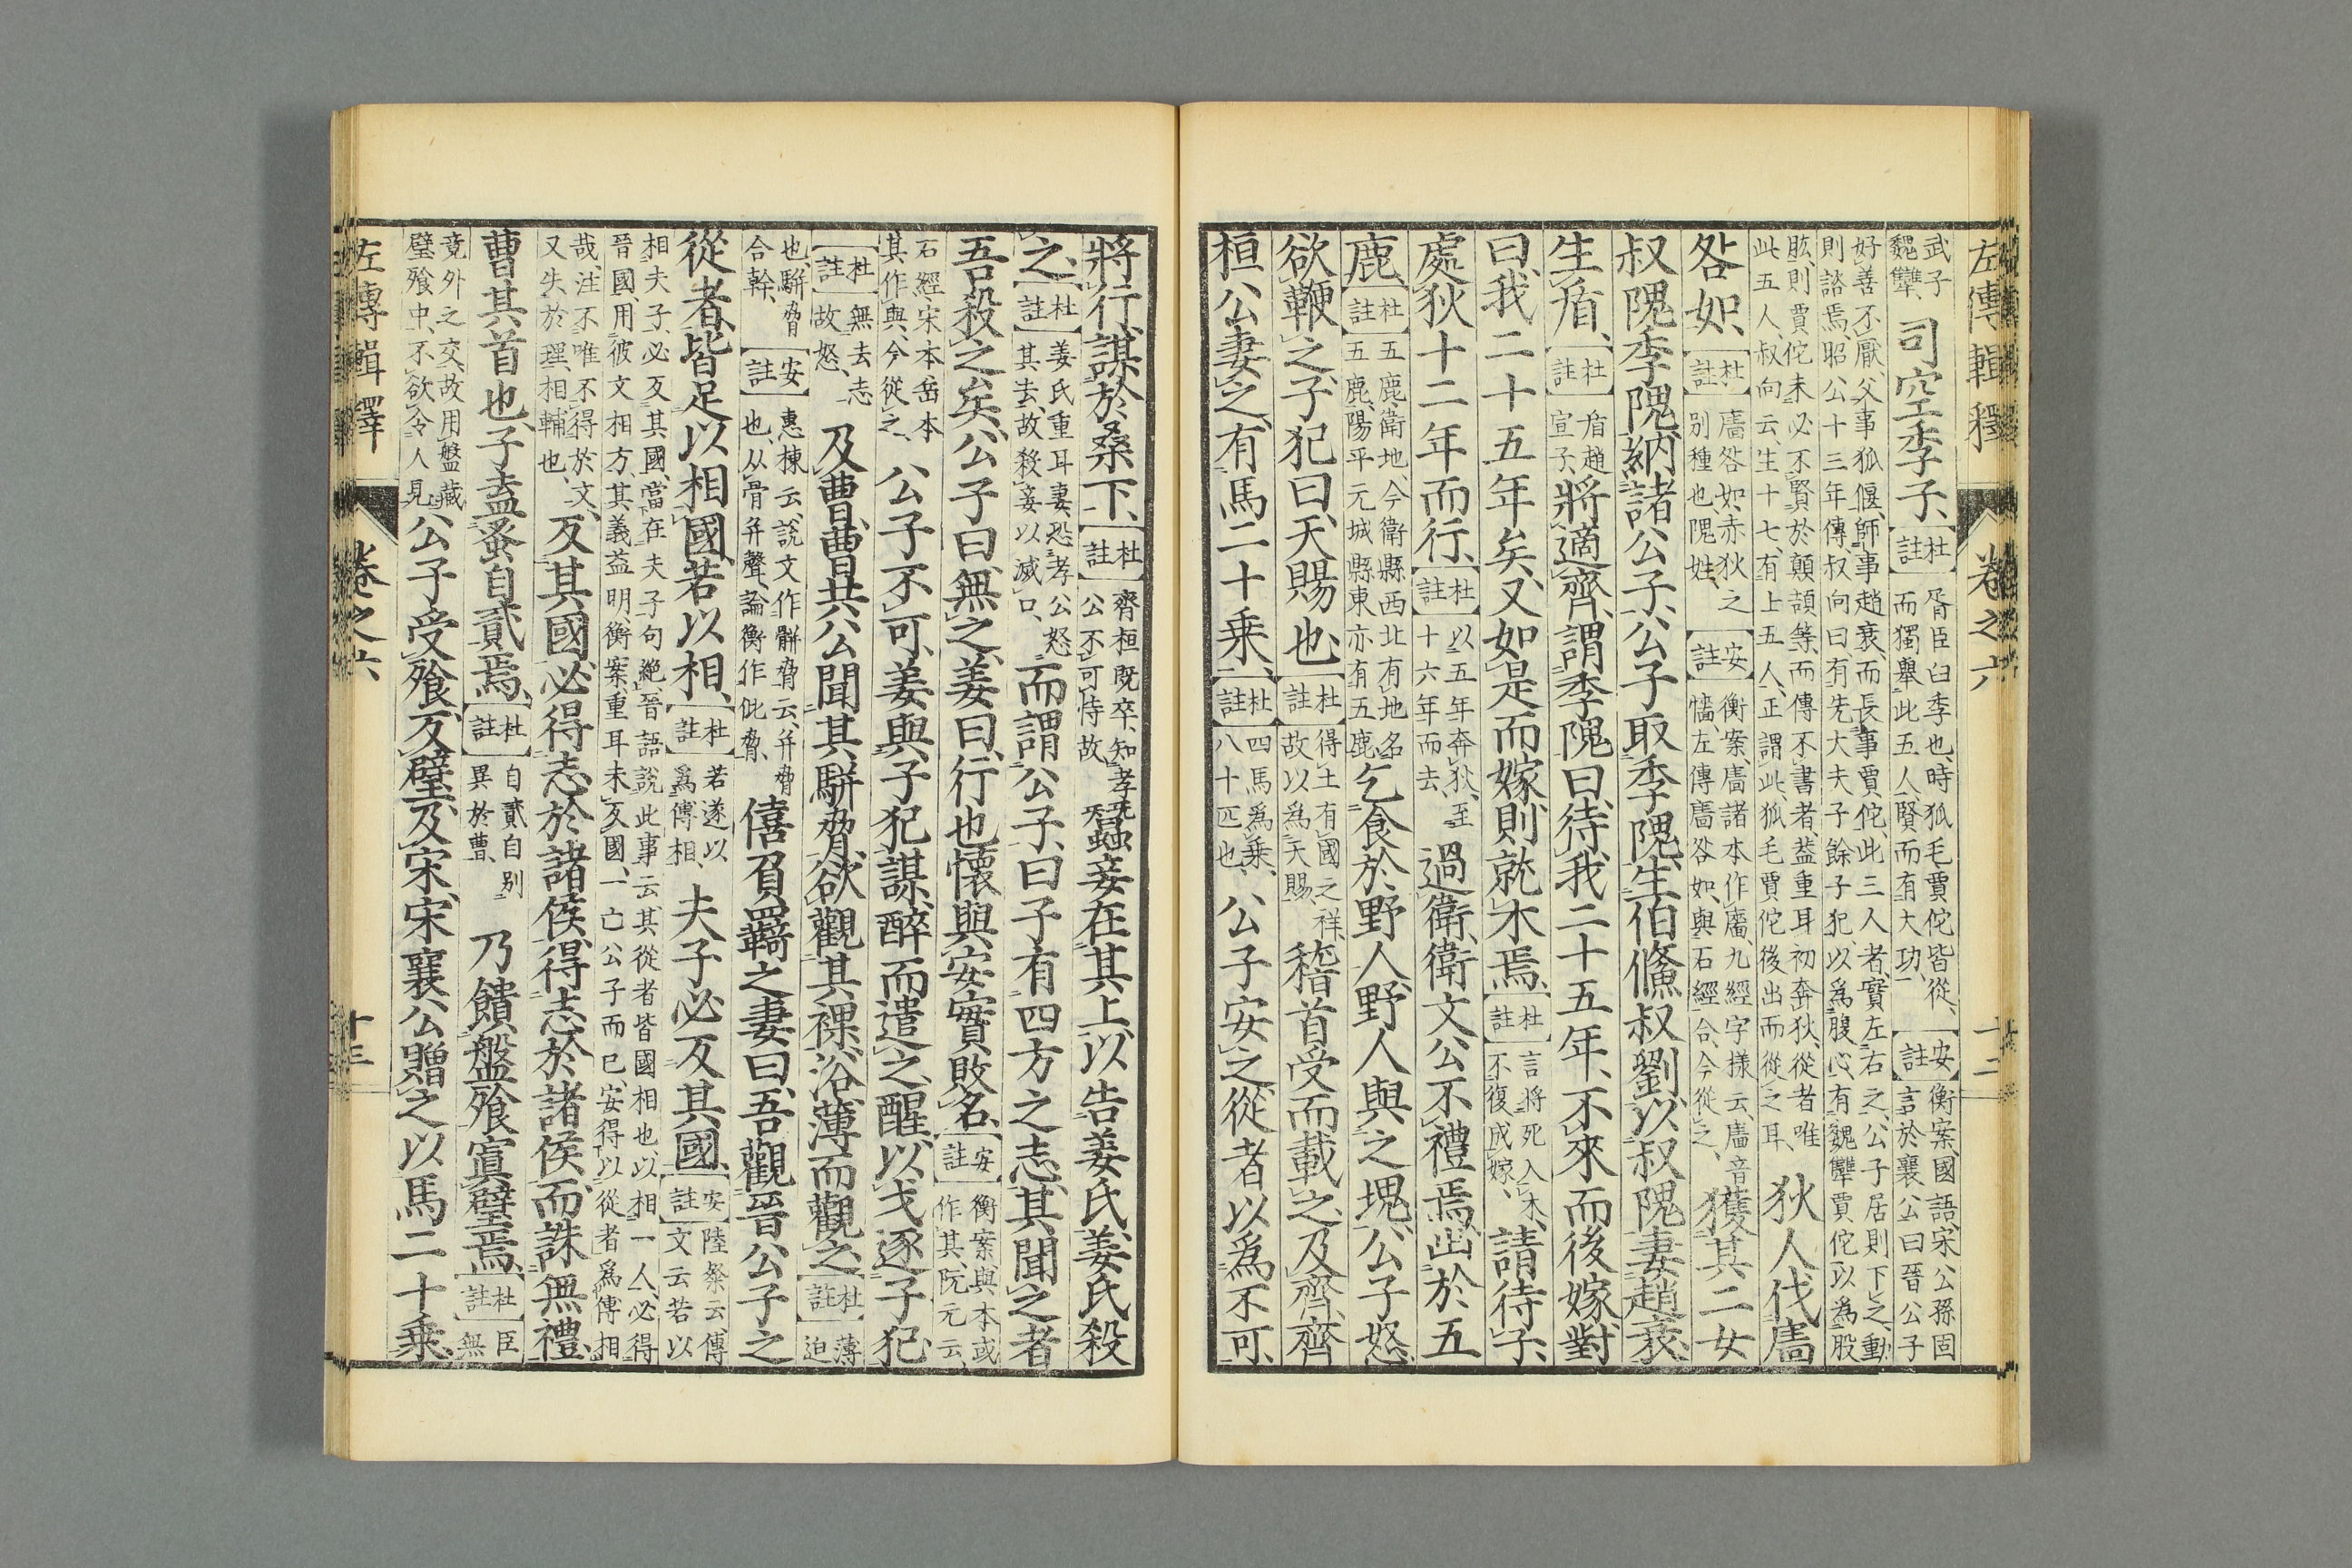 左傳輯釋 卷之六 十二
武子
魏犨、
司空季子、
杜註
胥臣臼季也、時狐毛賈佗皆從、
而獨舉此五人、賢而有大功、
安註
衡案、國語、宋公孫固
言於襄公曰、晉公子
好善不厭、父事狐偃、師事趙衰、而長事賈佗、此三人者、實左右之、公子居則下之、動
則諮焉、昭公十三年傳、叔向曰、有先大夫子餘子犯、以爲腹心、有魏犨賈佗、以爲股
肱、則賈佗未必不賢於顛頡等、而傳不書者、蓋重耳初奔狄、從者唯
此五人、叔向云、生十七、有上五人、正謂此、狐毛賈佗後出而從之耳、
狄人伐廧
咎如、
杜註
廧咎如、赤狄之
別種也、隗姓、
安註
衡案、廧諸本作廧、九經字樣云、廧音
牆、左傳廧咎如、與石經合、今從之、
獲其二女
叔隗季隗、納諸公子、公子取季隗、生伯鯈叔劉、以叔隗妻趙衰、
生盾、
杜註
盾、趙
宣子、
將適齊、謂季隗曰、待我二十五年、不來而後嫁、對
曰、我二十五年矣、又如是而嫁、則就木焉、
杜註
言將死入木、
不復成嫁、
請待子、
處狄十二年而行、
杜註
以五年奔狄、至
十六年而去、
過衛、衛文公不禮焉、出於五
鹿、
杜註
五鹿、衛地、今衛縣西北有地名
五鹿、陽平元城縣東亦有五鹿、
乞食於野人、野人與之塊、公子怒、
欲鞭之、子犯曰、天賜也、
杜註
得土有國之祥、
故以爲天賜、
稽首受而載之、及齊、齊
桓公妻之、有馬二十乘、
杜註
四馬爲乘、
八十匹也、
公子安之、從者以爲不可、
將行、謀於桑下、
杜註
齊桓既卒、知孝
公不可恃故
蠶妾在其上、以告姜氏、姜氏殺
之、
杜註
姜氏重耳妻、恐孝公怒
其去、故殺妾以滅口、
而謂公子曰、子有四方之志、其聞之者
吾殺之矣、公子曰、無之、姜曰、行也、懷與安、實敗名、
安註
衡案、與本或
作其、阮元云、
石經宋本岳本
其作與、今從之、
公子不可、姜與子犯謀、醉而遣之、醒以戈逐子犯、
杜註
無去志
故怒、
及曹、曹共公聞其駢脅、欲觀其裸浴、薄而觀之、
杜註
薄
迫
也、駢脅
合幹、
安註
惠棟云、說文作骿脅、云、并脅
也、从骨并聲、論衡作仳脅、
僖負羈之妻曰、吾觀晉公子之
從者、皆足以相國、若以相、
杜註
若遂以
爲傅相、
夫子必反其國、
安註
陸粲云、傳
文云若以
相夫子、必反其國、當在夫子句絶、晉語說此事云、其從者皆國相也、以相一人、必得
晉國、用彼文相方、其義益明、衡案、重耳未反國、一亡公子而已、安得以從者爲傅相
哉、注不唯不得於文、
又失於理、相輔也、
反其國、必得志於諸侯、得志於諸侯、而誅無禮、
曹其首也、子盍蚤自貳焉、
杜註
自貳、自別
異於曹、
乃饋盤飱寘璧焉、
杜註
臣
無
竟外之交、故用盤藏
璧飱中、不欲令人見、
公子受飱反璧、及宋、宋襄公贈之以馬二十乘、
左傳輯釋 卷之六 十三